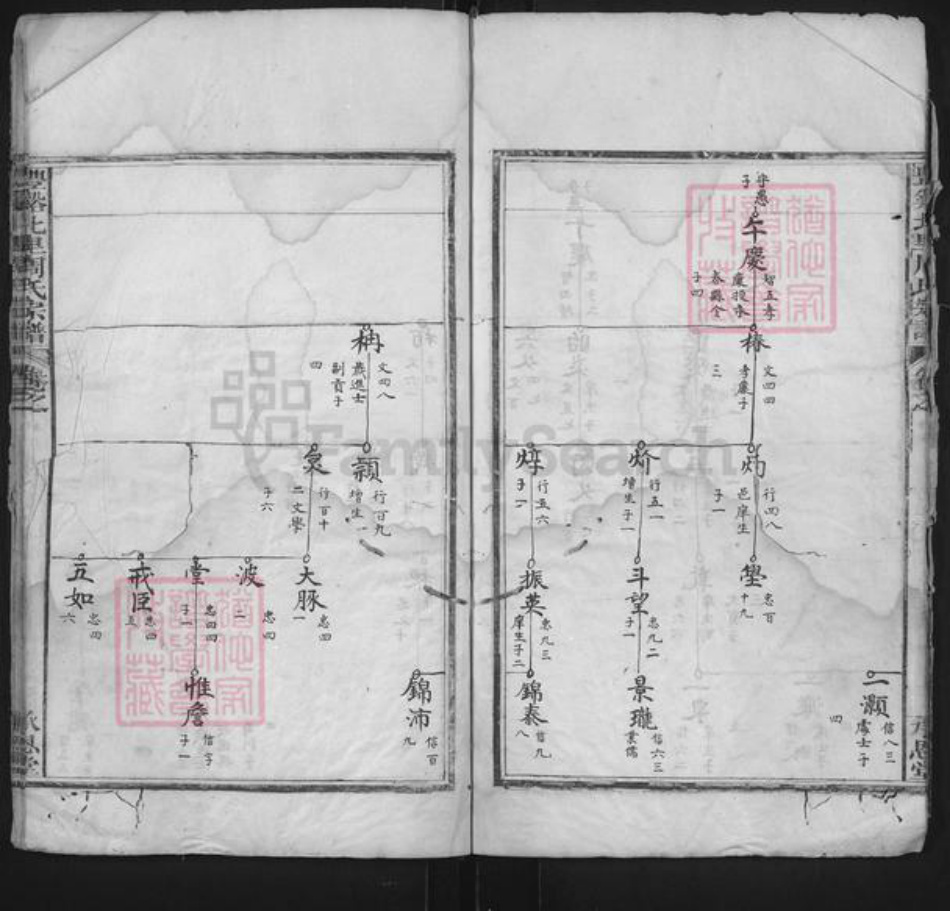 守愚
子
午慶
子四
椿
文四四
孝廉子
三
行四八
邑庠生
子一
忠百
十九
行五一
增生子一
斗望
忠九二
子一
景瓏
信六三
業儒
焞
行五六
子一
振英
忠九三
庠生子二
錦泰
信九
八
二灝
信八三
處士子
四
豐谿北里周氏宗譜
卷之一
承恩堂
文四八
歲進士
副貢子
四
穎
行百九
增生
行百十
二文學
子六
大豚
忠四
一
波
忠四
二
堂
忠四四
子一
惟詹
信字
子一
戒臣
忠四
五
五如
忠四
六
錦沛
信百
九
FamilySearch